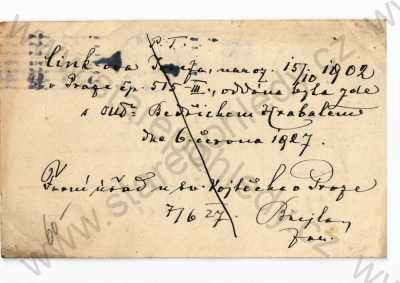 P. T.
Link ova Josefa, naroz. 15/10 1902
v Praze čp. 515-III., oddána byla zde
s MUDr. Bedřichem Hrabalem
dne 6. června 1927.
Farní úřad u sv. Vojtěcha v Praze
7/6 27.
far.
60,-
www.stareopohledy.cz